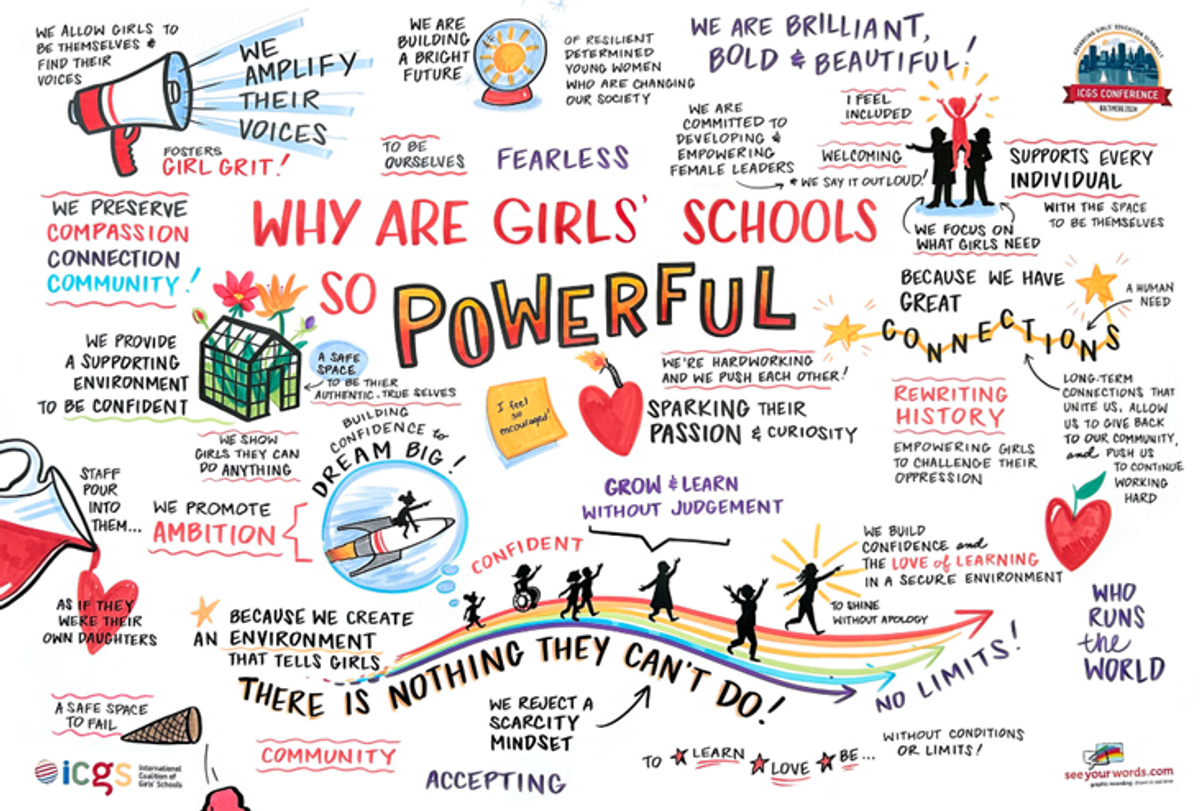 WE ALLOW GIRLS TO
BE THEMSELVES &
FIND THEIR
VOICES
WE
AMPLIFY
THEIR
VOICES
FOSTERS
GIRL GRIT!
WE ARE
BUILDING
A BRIGHT
FUTURE
OF RESILIENT
DETERMINED
YOUNG WOMEN
WHO ARE CHANGING
OUR SOCIETY
WE ARE BRILLIANT,
BOLD & BEAUTIFUL!
ADVANCING GIRLS' EDUCATION GLOBALLY
ICGS CONFERENCE
BALTIMORE 2024
TO BE
OURSELVES
FEARLESS
WE ARE
COMMITTED TO
DEVELOPING &
EMPOWERING
FEMALE LEADERS
& WE SAY IT OUT LOUD!
I FEEL
INCLUDED
WELCOMING
SUPPORTS EVERY
INDIVIDUAL
WITH THE SPACE
TO BE THEMSELVES
WE FOCUS ON
WHAT GIRLS NEED
WE PRESERVE
COMPASSION
CONNECTION
COMMUNITY!
WHY ARE GIRLS' SCHOOLS
SO POWERFUL
BECAUSE WE HAVE
GREAT
CONNECTIONS
A HUMAN
NEED
LONG-TERM
CONNECTIONS THAT
UNITE US, ALLOW
US TO GIVE BACK
TO OUR COMMUNITY,
and PUSH US
TO CONTINUE
WORKING
HARD
WE PROVIDE
A SUPPORTING
ENVIRONMENT
TO BE CONFIDENT
A SAFE
SPACE
TO BE THIER
AUTHENTIC, TRUE SELVES
I feel
so
encouraged!
WE'RE HARDWORKING
AND WE PUSH EACH OTHER!
SPARKING THEIR
PASSION & CURIOSITY
REWRITING
HISTORY
EMPOWERING GIRLS
TO CHALLENGE THEIR
OPPRESSION
WE SHOW
GIRLS THEY CAN
DO ANYTHING
BUILDING
CONFIDENCE to
DREAM BIG!
STAFF
POUR
INTO
THEM...
AS IF THEY
WERE THEIR
OWN DAUGHTERS
WE PROMOTE
AMBITION
GROW & LEARN
WITHOUT JUDGEMENT
CONFIDENT
WE BUILD
CONFIDENCE and
THE LOVE of LEARNING
IN A SECURE ENVIRONMENT
TO SHINE
WITHOUT APOLOGY
WHO
RUNS
the
WORLD
BECAUSE WE CREATE
AN ENVIRONMENT
THAT TELLS GIRLS
THERE IS NOTHING THEY CAN'T DO!
NO LIMITS!
WE REJECT A
SCARCITY
MINDSET
A SAFE SPACE
TO FAIL
COMMUNITY
ACCEPTING
TO LEARN
LOVE BE...
WITHOUT CONDITIONS
OR LIMITS!
icgs
International
Coalition of
Girls' Schools
seeyourwords.com
graphic recording: drawn in real time